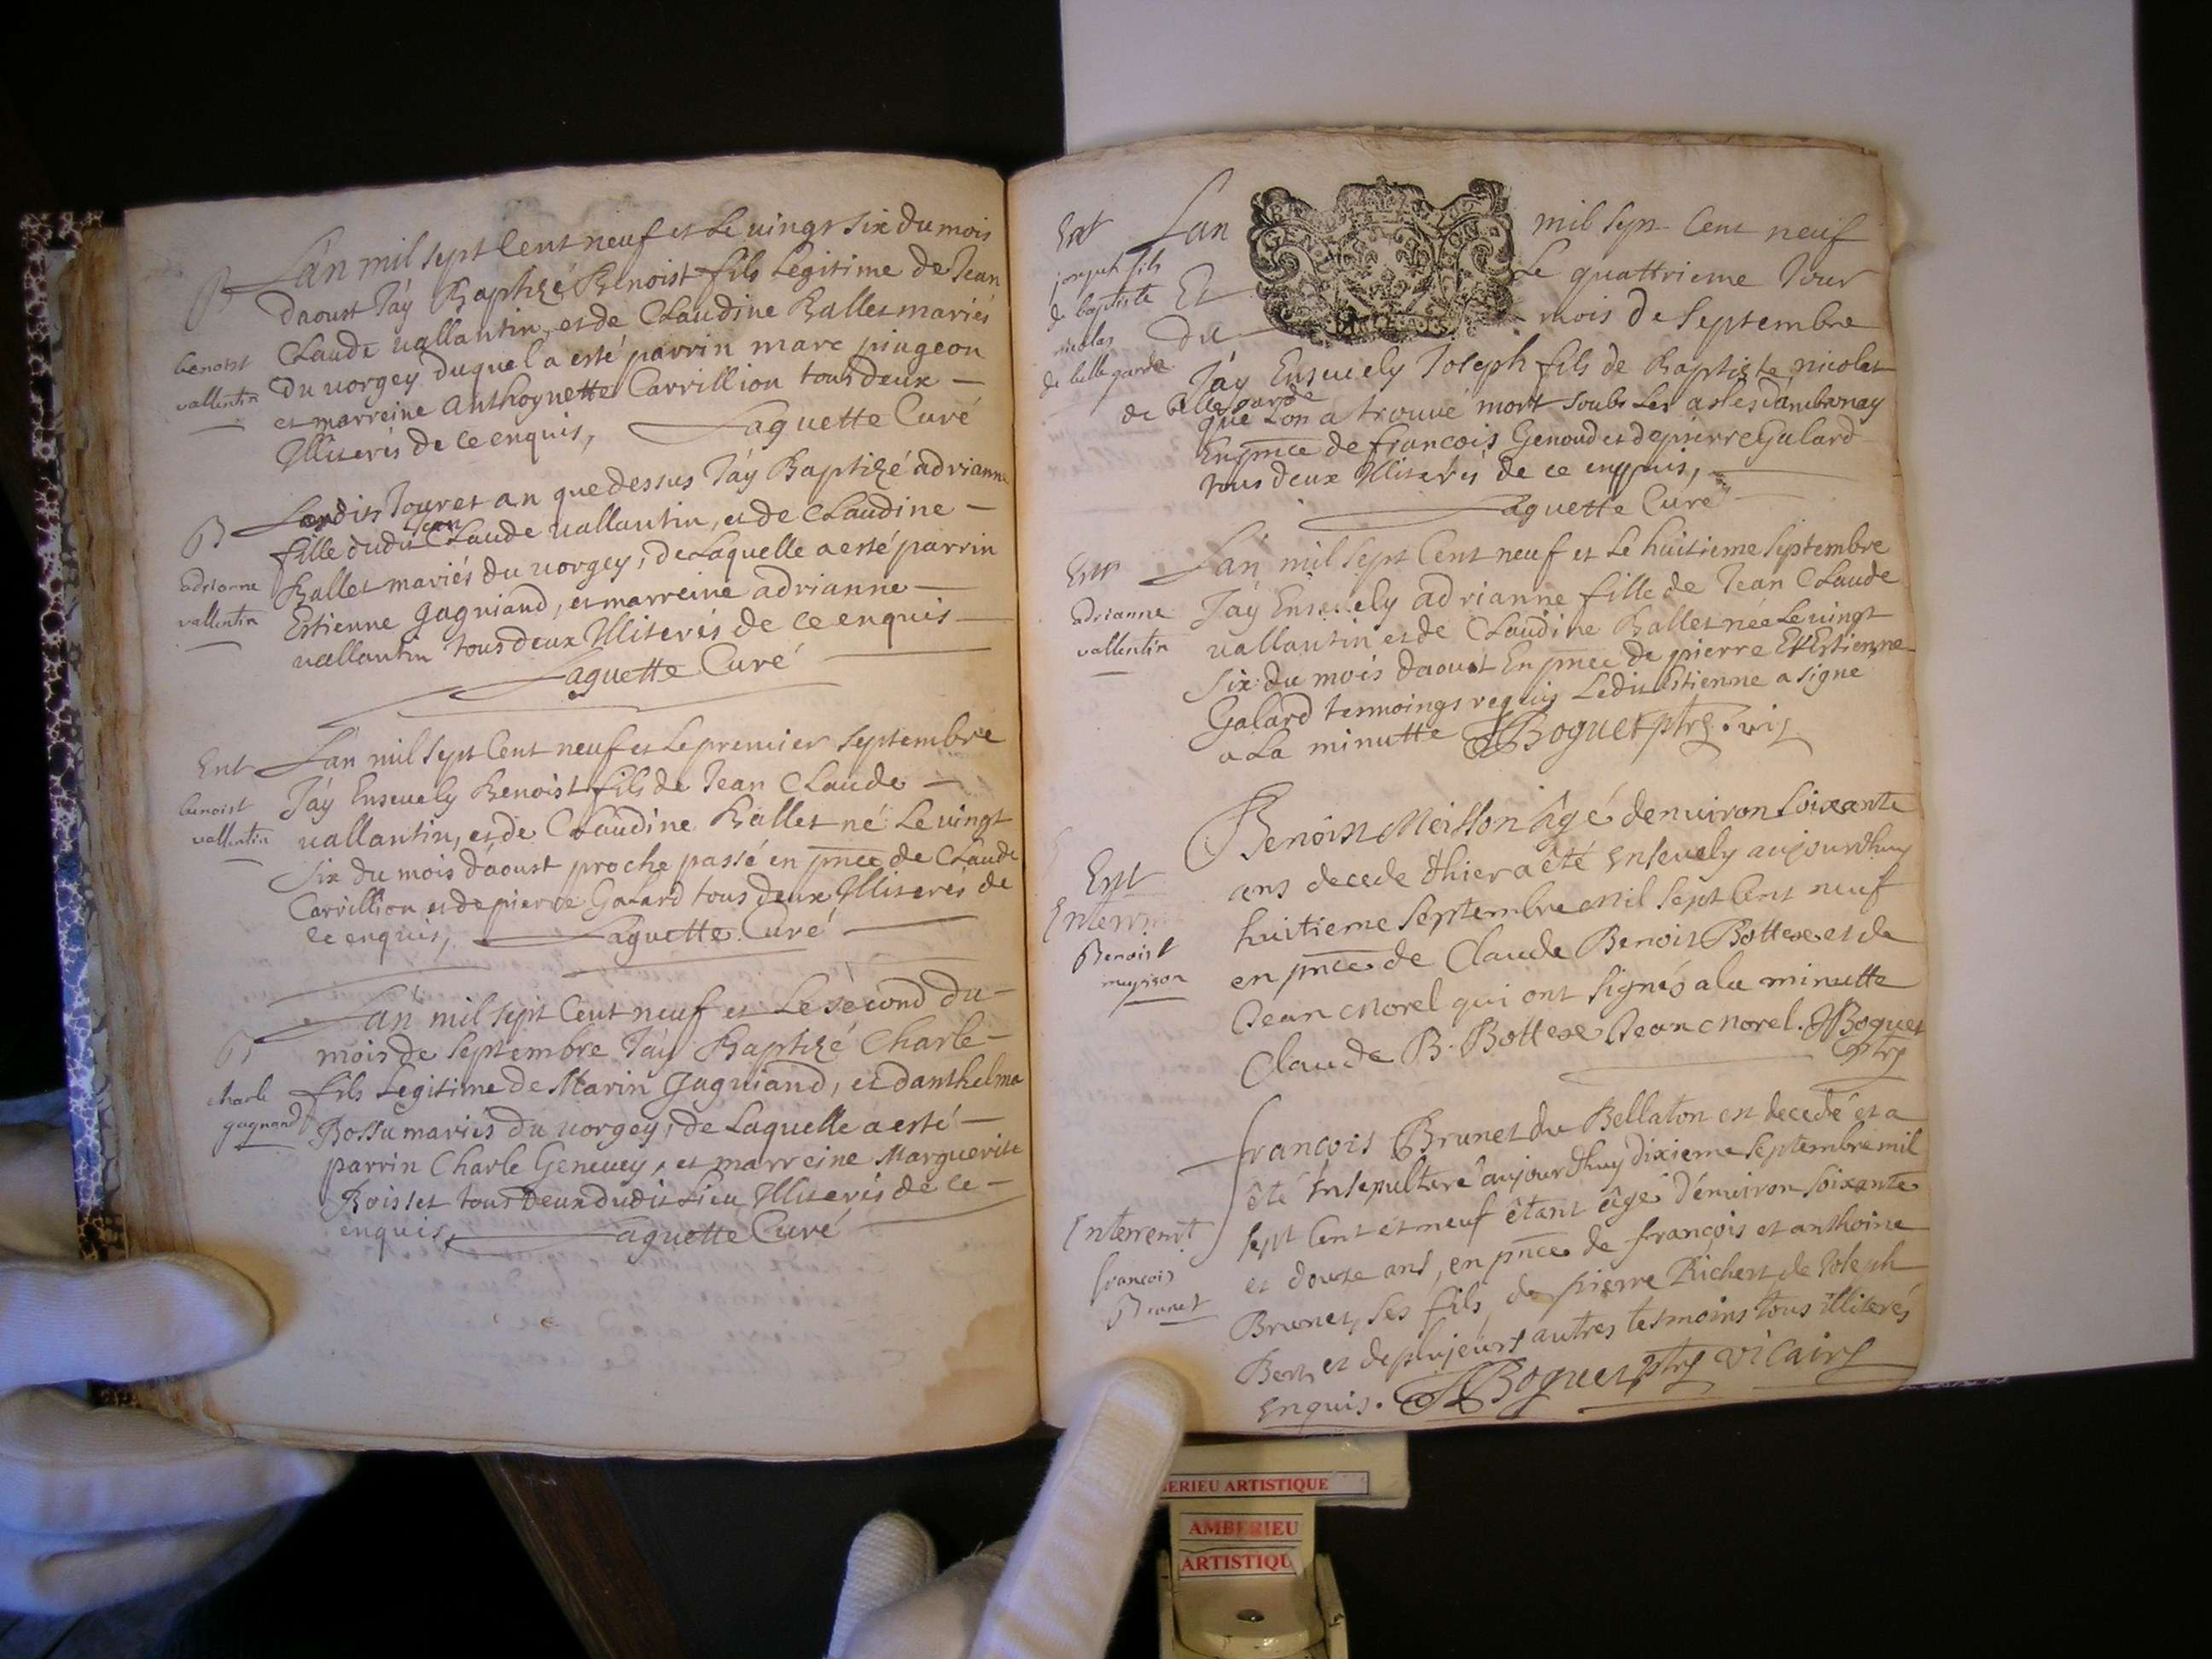 B
benoist
vallentin
L'an mil sept Cent neuf et Le vingt six du mois
daoust J'áy Baptizé Benoist fils Legitime de Jean
Claude vallantin, et de Claudine Ballet mariés
du vorgey duquel a esté parrin marc pingeon
et marreine Anthoynette Carrillion tous deux —
Illiterés de ce enquis, Laguette Curé
B
adrianne
vallentin
Lesdits Jour et an que dessus J'áy Baptizé adrianne
fille dudit Jean Claude vallantin, et de Claudine —
Ballet mariés du vorgey, de Laquelle a esté parrin
Estienne Gagniand, et marreine adrianne —
vallantin tous deux Illiterés de ce enquis —
Laguette Curé
Ent
benoist
vallentin
L'an mil sept Cent neuf et Le premier Septembre
J'áy Ensevely Benoist fils de Jean Claude —
vallantin, et de Claudine Ballet né Le vingt
Six du mois daoust proche passé en pnce de Claude
Carrillion et de pierre Galard tous deux Illiterés de
ce enquis, Laguette Curé
B
charle
gagnand
L'an mil sept Cent neuf et Le second du —
mois de Septembre J'áy Baptizé Charle —
fils Legitime de Marin Gagniand, et danthelma
Bossu mariés du vorgey, de Laquelle a esté —
parrin Charle Genevey, et marreine Marguerite
Boisset tous deux dudit Lieu Illiterés de ce —
enquis, Laguette Curé
Ent
joseph fils
de baptiste
nicolas
de bellegarde
Lan mil Sept Cent neuf
Et Le quattrieme Jour
du mois de Septembre
J'áy Ensevely Joseph fils de Baptiste nicolet
de Bellegarde
que Lon a trouvé mort soubs Les astes dambronay
En pnce de francois Genoud et de pierre Galard
tous deux Illiterés de ce enquis,
Laguette Curé
Ent
adrianne
vallentin
L'an mil Sept Cent neuf et Le huitieme Septembre
J'áy Ensevely adrianne fille de Jean Claude
vallantin et de Claudine Ballet née Le vingt
Six du mois daoust En pnce de pierre Et Estienne
Galard tesmoings requis Ledit Estienne a signe
a La minutte JBoguet ptre. vic
Ent
Enterrmt
Benoist
meysson
Benoist Meisson âgé denviron soixante
ans decede d'hier a été Ensevely aujourdhuy
huitieme Septembre Mil Sept Cent neuf
en pnce de Claude Benoit Bottex et de
Jean Morel qui ont signés a la minutte
Claude B. Bottex Jean Morel. JBoguet
ptre
Enterremt
francois
Brunet
françois Brunet du Bellaton est decedé et a
été Insepulturé aujourdhuy dixieme Septembre mil
sept Cent et neuf êtant âgé d'environ soixante
et douze ans, en pnce de françois et anthoine
Brunet, ses fils, de pierre Richert, de Joseph
Bert, et de plusieurs autres tesmoins tous illiterés
Enquis. JBoguet ptre vicaire
BERIEU ARTISTIQUE
AMBERIEU
ARTISTIQU